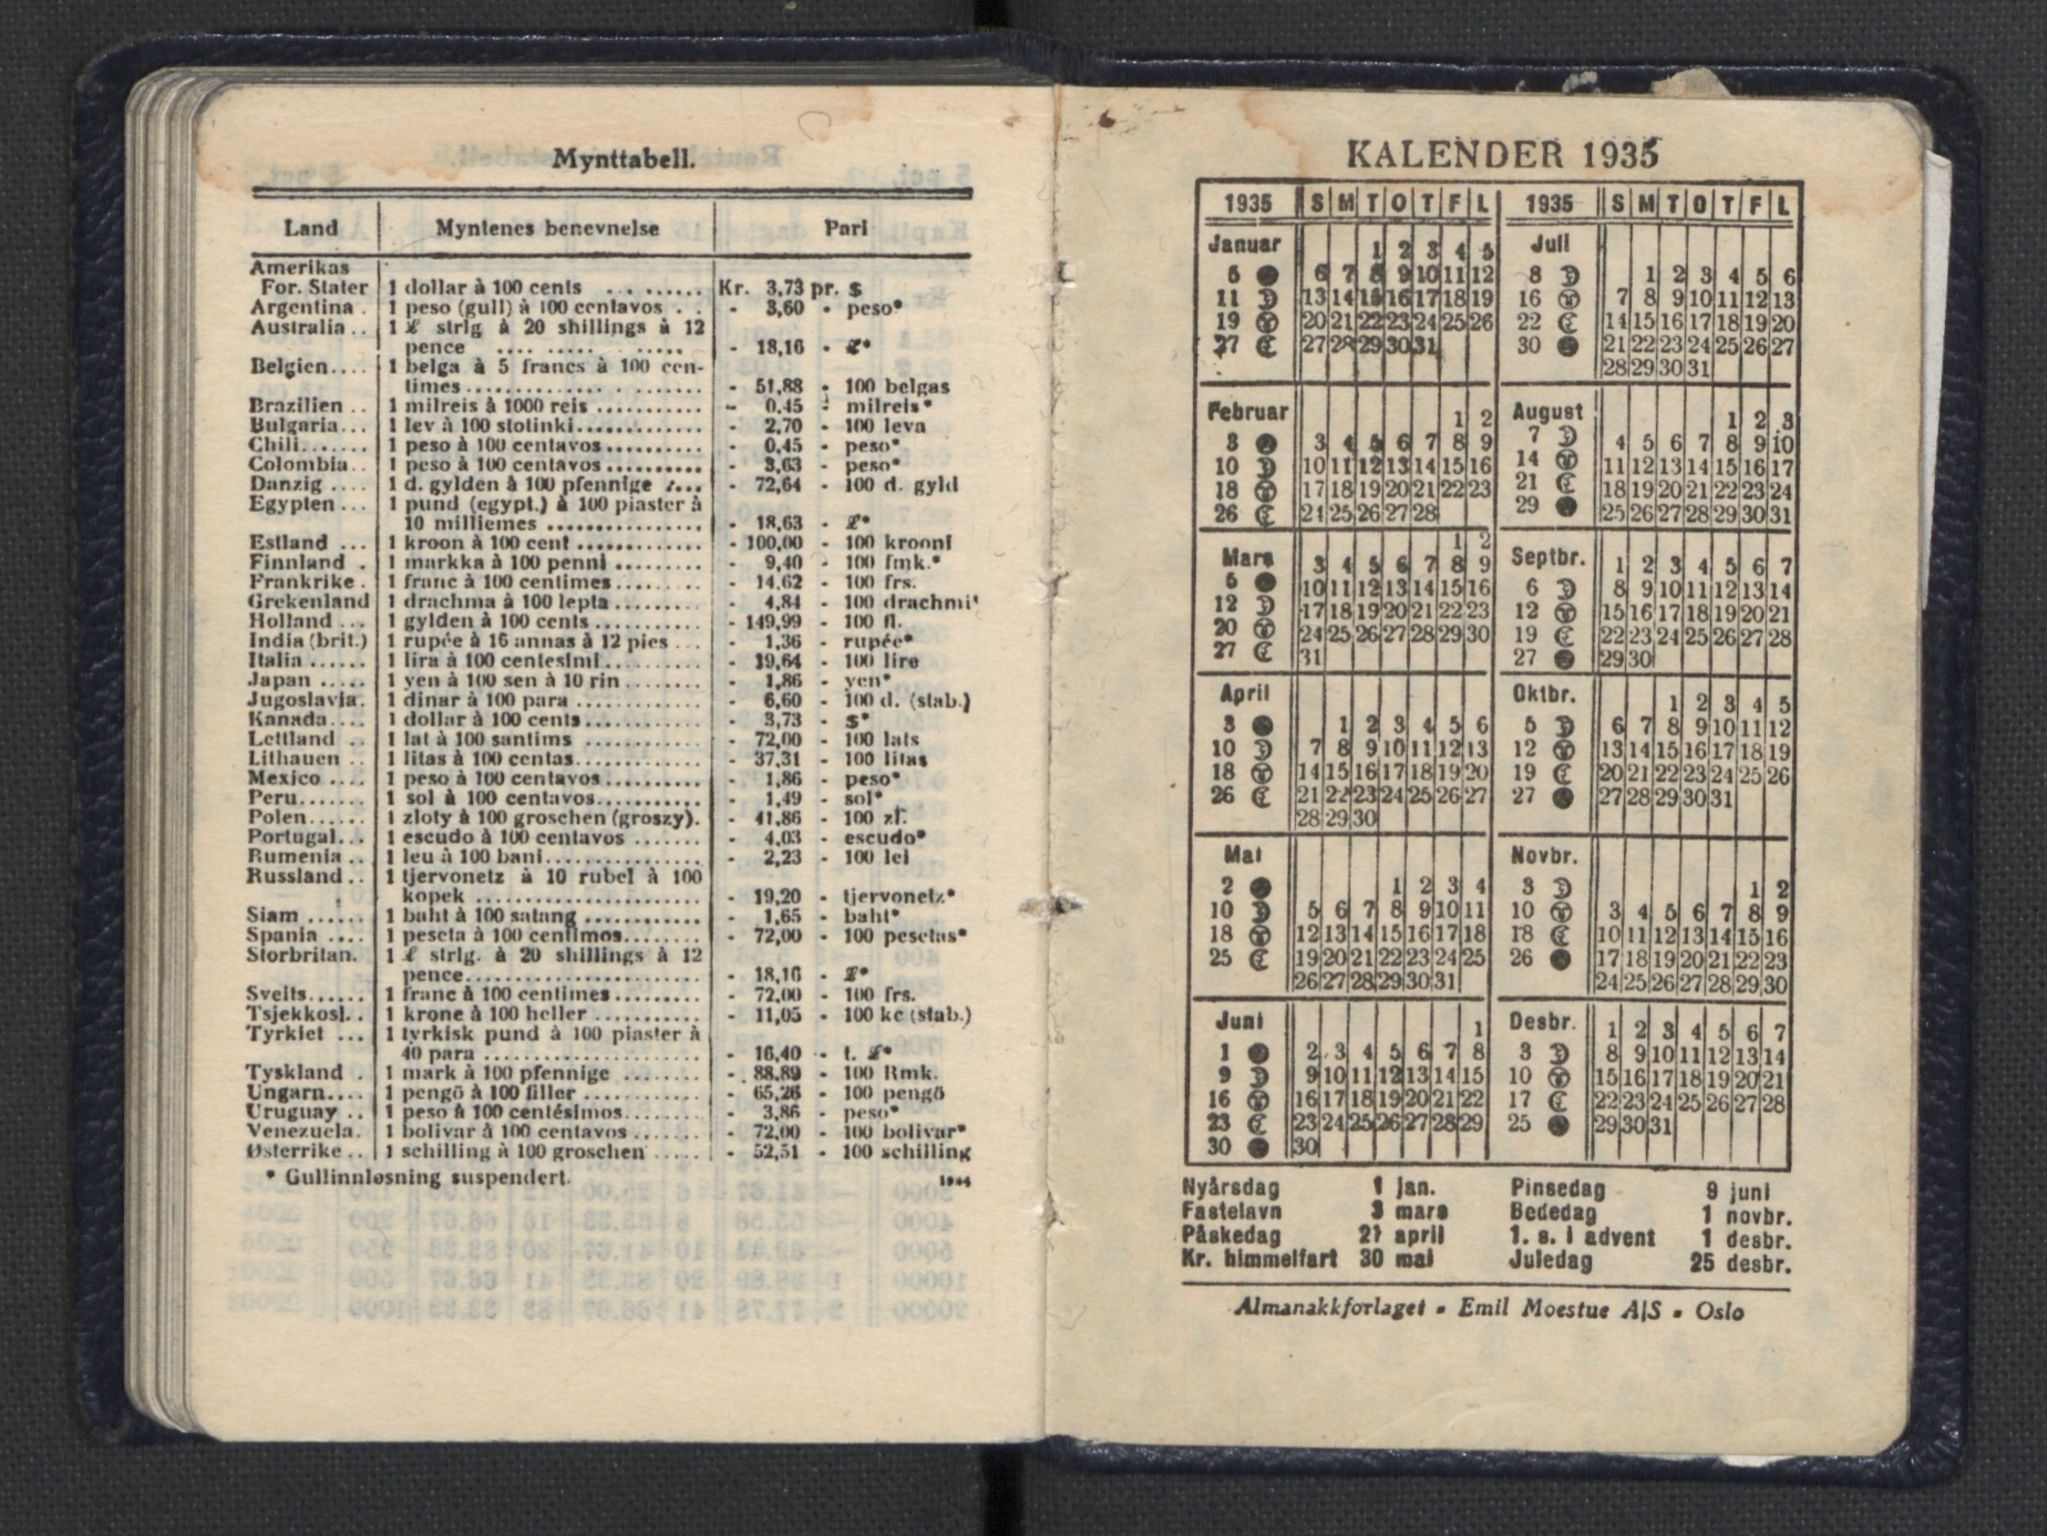 Mynttabell.
Land Myntenes benevnelse Pari
Amerikas
For. Stater 1 dollar à 100 cents . . . ...... Kr. 3,73 pr. $
Argentina . 1 peso (gull) à 100 centavos . . - 3,60 - peso*
Australia .. 1 £ strlg à 20 shillings à 12
pence .... ..... . ..... - 18,16 - £*
Belgien.... 1 belga à 5 francs à 100 cen-
times.............. . ....... - 51,88 - 100 belgas
Brazilien .. 1 milreis à 1000 reis ........... - 0,45 - milreis*
Bulgaria... 1 lev à 100 stotinki............. - 2,70 - 100 leva
Chili....... 1 peso à 100 centavos.......... - 0,45 - peso*
Colombia.. 1 peso à 100 centavos .......... - 3,63 - peso*
Danzig .... 1 d. gylden à 100 pfennige .... - 72,64 - 100 d. gyld
Egypten ... 1 pund (egypt.) à 100 piaster à
10 milliemes ................ - 18,63 - £*
Estland ... 1 kroon à 100 cent ............. - 100,00 - 100 krooni
Finnland . 1 markka à 100 penni ......... - 9,40 - 100 fmk.*
Frankrike . 1 franc à 100 centimes......... - 14,62 - 100 frs.
Grekenland 1 drachma à 100 lepta ......... - 4,84 - 100 drachmi*
Holland ... 1 gylden à 100 cents ........... - 149,99 - 100 fl.
India (brit.) 1 rupée à 16 annas à 12 pies ... - 1,36 - rupée*
Italia ...... 1 lira à 100 centesimi.......... - 19,64 - 100 lire
Japan ..... 1 yen à 100 sen à 10 rin ........ - 1,86 - yen*
Jugoslavia. 1 dinar à 100 para ............. - 6,60 - 100 d. (stab.)
Kanada.... 1 dollar à 100 cents ............ - 3,73 - $*
Lettland .. 1 lat à 100 santims ............ - 72,00 - 100 lats
Lithauen .. 1 litas à 100 centas............. - 37,31 - 100 litas
Mexico .... 1 peso à 100 centavos.......... - 1,86 - peso*
Peru....... 1 sol à 100 centavos........... - 1,49 - sol*
Polen...... 1 zloty à 100 groschen (groszy). - 41,86 - 100 zl.
Portugal... 1 escudo à 100 centavos ....... - 4,03 - escudo*
Rumenia .. 1 leu à 100 bani................ - 2,23 - 100 lei
Russland .. 1 tjervonetz à 10 rubel à 100
kopek ....................... - 19,20 - tjervonetz*
Siam ...... 1 baht à 100 satang ............ - 1,65 - baht*
Spania .... 1 peseta à 100 centimos........ - 72,00 - 100 pesetas*
Storbritan. 1 £ strlg. à 20 shillings à 12
pence........................ - 18,16 - £*
Sveits...... 1 franc à 100 centimes ......... - 72,00 - 100 frs.
Tsjekkosl.. 1 krone à 100 heller ........... - 11,05 - 100 kc (stab.)
Tyrkiet ... 1 tyrkisk pund à 100 piaster à
40 para ...................... - 16,40 - t. £*
Tyskland . 1 mark à 100 pfennige ........ - 88,89 - 100 Rmk.
Ungarn.... 1 pengö à 100 filler ............ - 65,26 - 100 pengö
Uruguay .. 1 peso à 100 centésimos........ - 3,86 - peso*
Venezuela. 1 bolivar à 100 centavos ....... - 72,00 - 100 bolivar*
Østerrike .. 1 schilling à 100 groschen ..... - 52,51 - 100 schilling
* Gullinnløsning suspendert.
KALENDER 1935
1935 S M T O T F L
Januar 1 2 3 4 5
5 6 7 8 9 10 11 12
11 13 14 15 16 17 18 19
19 20 21 22 23 24 25 26
27 27 28 29 30 31
Februar 1 2
3 3 4 5 6 7 8 9
10 10 11 12 13 14 15 16
18 17 18 19 20 21 22 23
26 24 25 26 27 28
1 2
Mars 3 4 5 6 7 8 9
5 10 11 12 13 14 15 16
12 17 18 19 20 21 22 23
20 24 25 26 27 28 29 30
27 31
April
3 1 2 3 4 5 6
10 7 8 9 10 11 12 13
18 14 15 16 17 18 19 20
26 21 22 23 24 25 26 27
28 29 30
Mai
2 1 2 3 4
10 5 6 7 8 9 10 11
18 12 13 14 15 16 17 18
25 19 20 21 22 23 24 25
26 27 28 29 30 31
Juni 1
1 2 3 4 5 6 7 8
9 9 10 11 12 13 14 15
16 16 17 18 19 20 21 22
23 23 24 25 26 27 28 29
30 30
1935 S M T O T F L
Juli
8 1 2 3 4 5 6
16 7 8 9 10 11 12 13
22 14 15 16 17 18 19 20
30 21 22 23 24 25 26 27
28 29 30 31
August 1 2 3
7 4 5 6 7 8 9 10
14 11 12 13 14 15 16 17
21 18 19 20 21 22 23 24
29 25 26 27 28 29 30 31
Septbr. 1 2 3 4 5 6 7
6 8 9 10 11 12 13 14
12 15 16 17 18 19 20 21
19 22 23 24 25 26 27 28
27 29 30
Oktbr. 1 2 3 4 5
5 6 7 8 9 10 11 12
12 13 14 15 16 17 18 19
19 20 21 22 23 24 25 26
27 27 28 29 30 31
Novbr.
3 1 2
10 3 4 5 6 7 8 9
18 10 11 12 13 14 15 16
26 17 18 19 20 21 22 23
24 25 26 27 28 29 30
Desbr. 1 2 3 4 5 6 7
3 8 9 10 11 12 13 14
10 15 16 17 18 19 20 21
17 22 23 24 25 26 27 28
25 29 30 31
Nyårsdag 1 jan. Pinsedag 9 juni
Fastelavn 3 mars Bededag 1 novbr.
Påskedag 21 april 1. s. i advent 1 desbr.
Kr. himmelfart 30 mai Juledag 25 desbr.
Almanakkforlaget - Emil Moestue A|S - Oslo